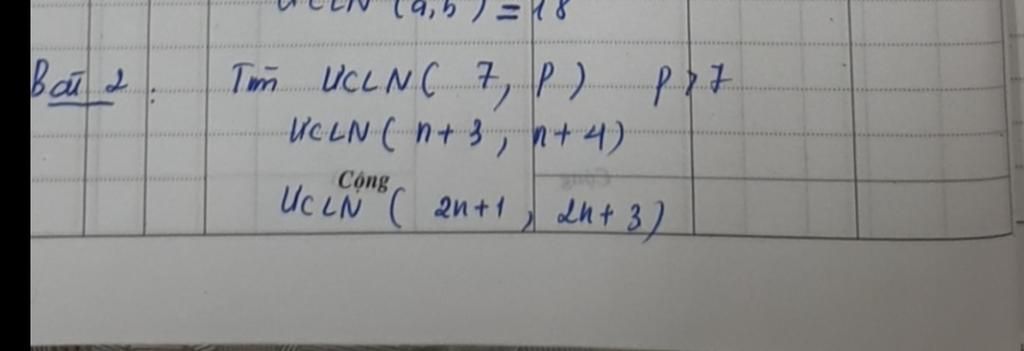 ƯCLN (a,b) = 18
Bài 2 : Tìm ƯCLN( 7, p) p > 7
ƯCLN( n+3, n+4)
Cộng
ƯCLN ( 2n+1, 2n+3)